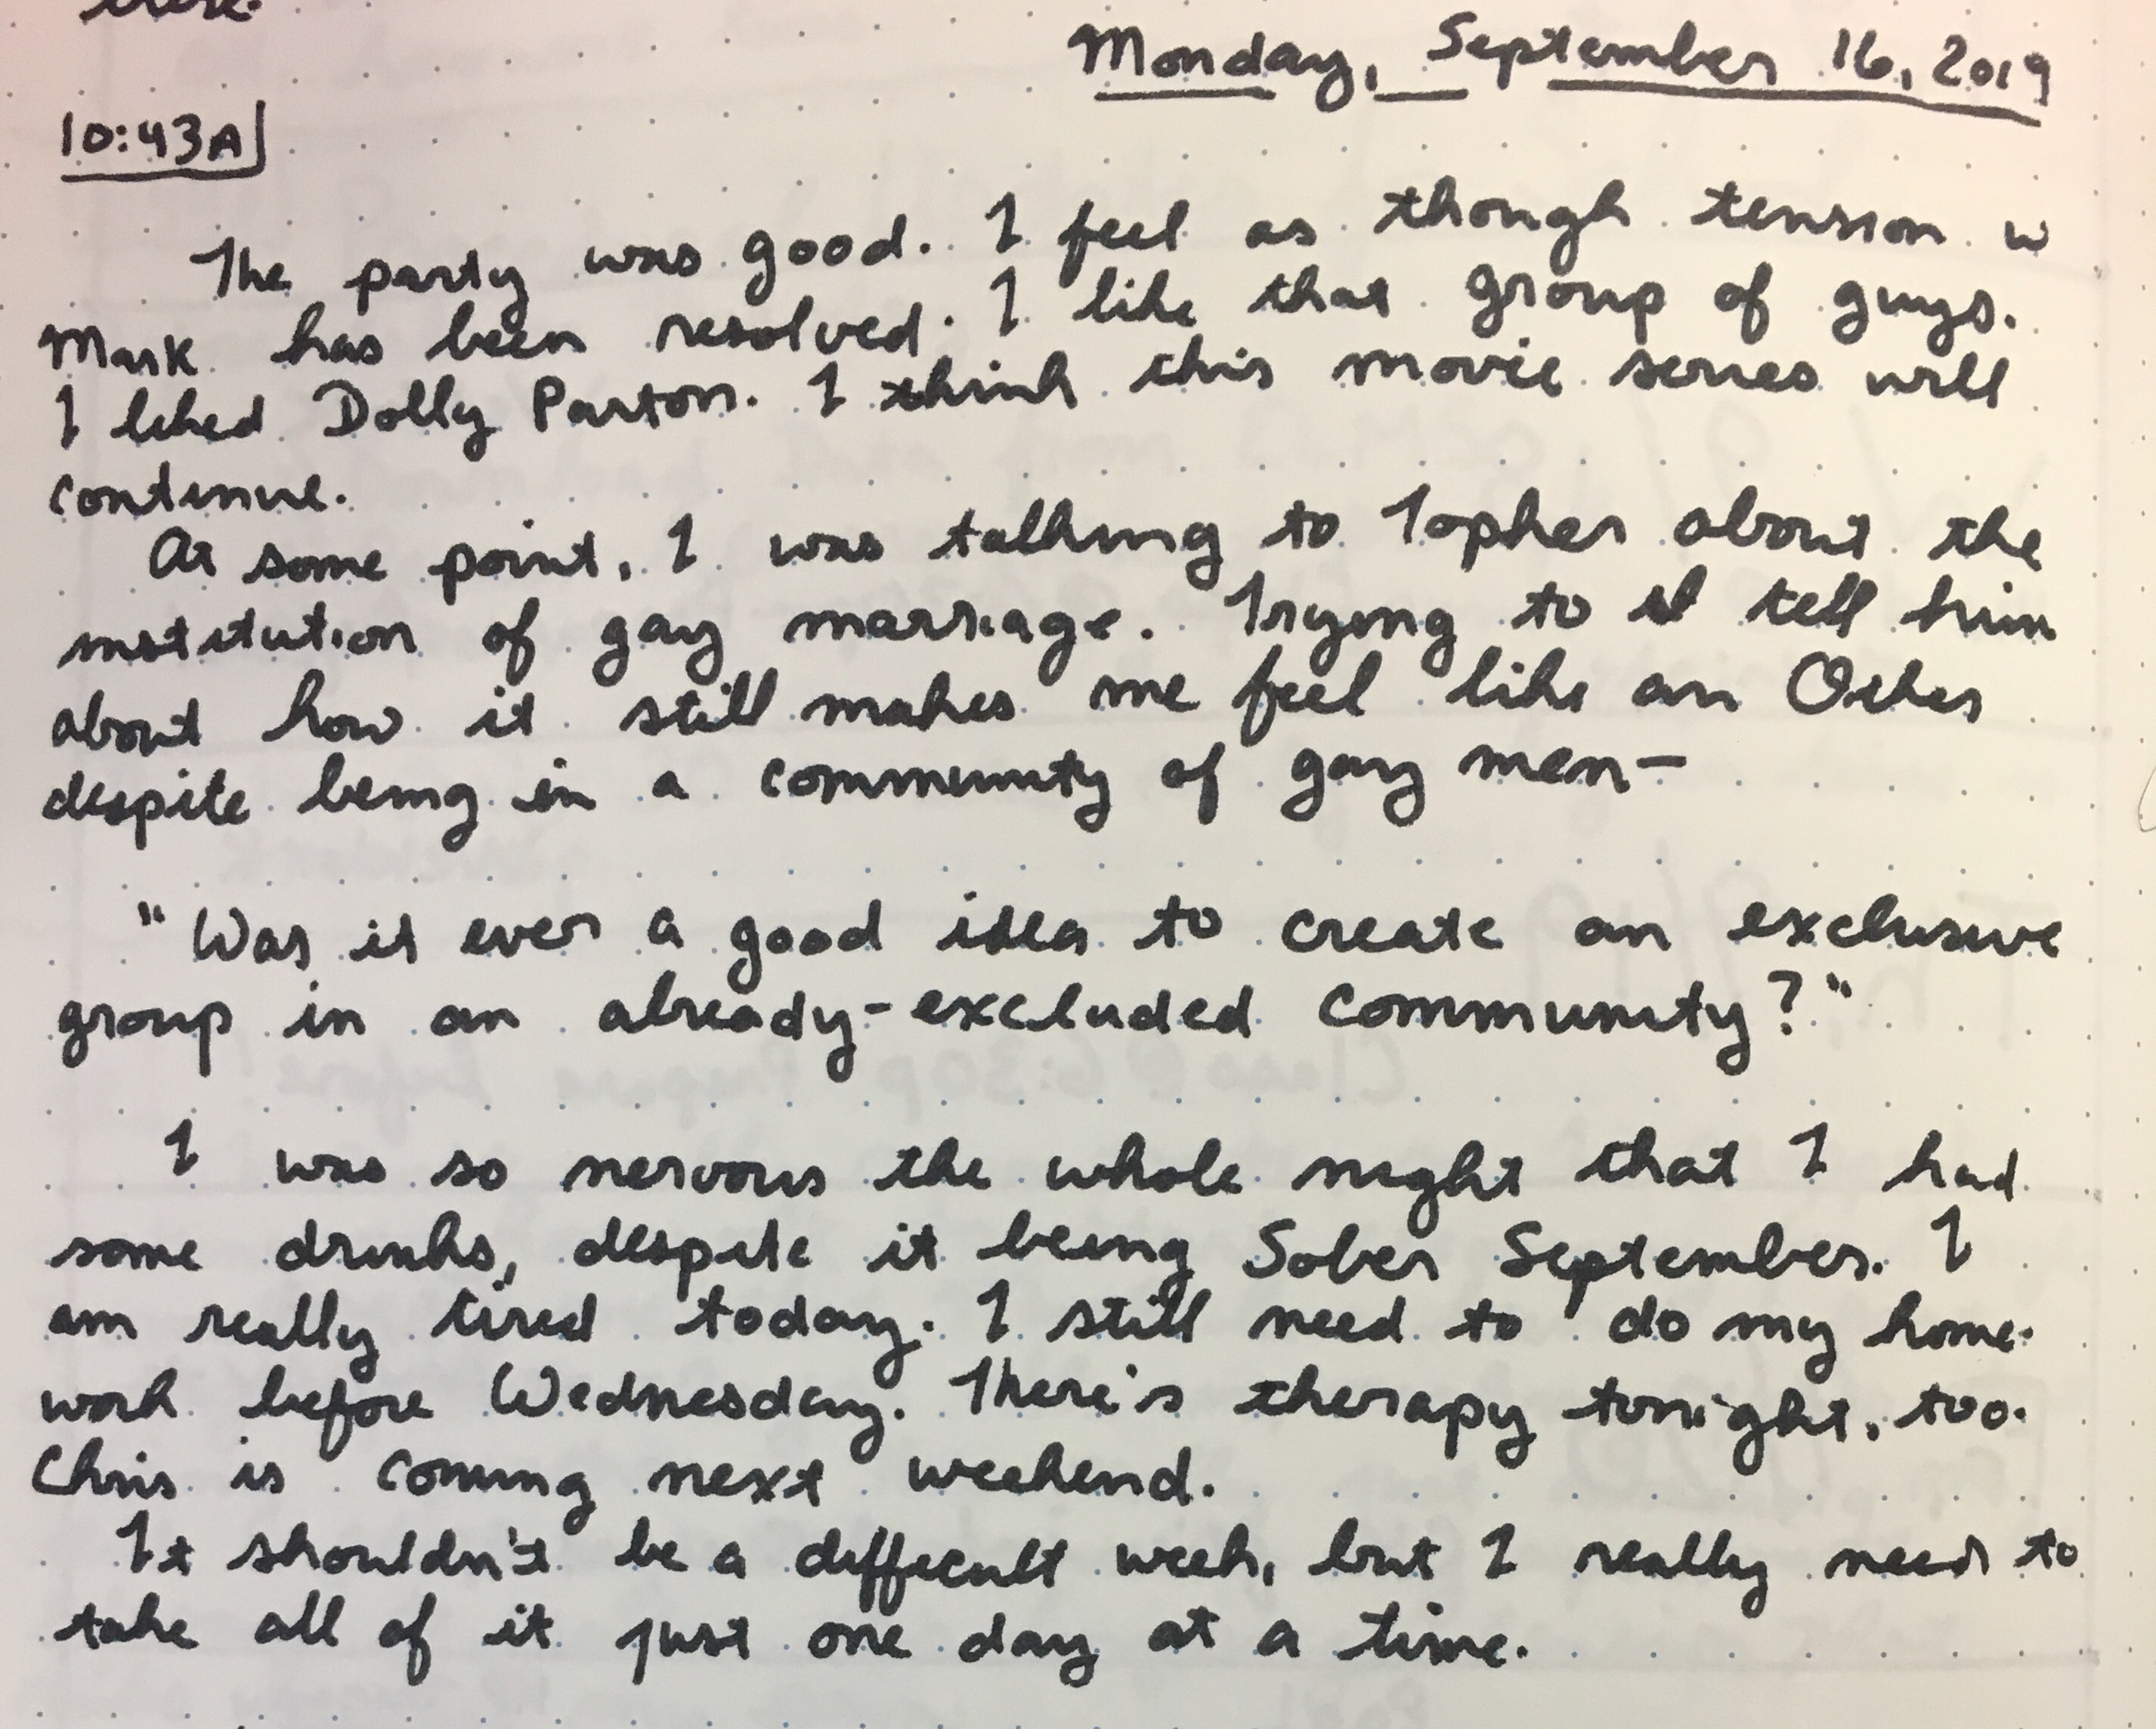 there.
Monday, September 16, 2019
10:43A
The party was good. I feel as though tension w
Mark has been resolved. I like that group of guys.
I liked Dolly Parton. I think this movie series will
continue.
At some point, I was talking to Topher about the
institution of gay marriage. Trying to tell him
about how it still makes me feel like an Other
despite being in a community of gay men—
"Was it ever a good idea to create an exclusive
group in an already-excluded community?"
I was so nervous the whole night that I had
some drinks, despite it being Sober September. I
am really tired today. I still need to do my home-
work before Wednesday. There's therapy tonight, too.
Chris is coming next weekend.
It shouldn't be a difficult week, but I really need to
take all of it just one day at a time.